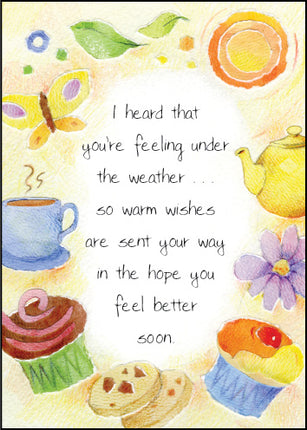 I heard that
you're feeling under
the weather . . .
so warm wishes
are sent your way
in the hope you
feel better
soon.